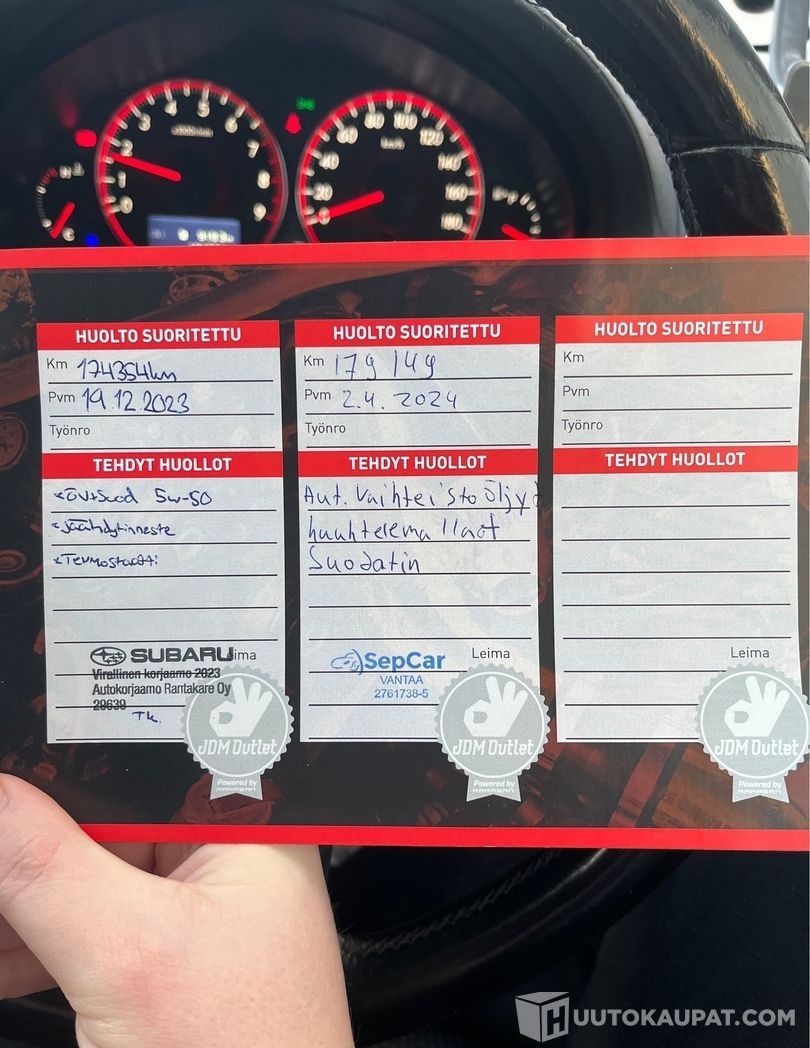 0 1 2 3 4 5 6 7 8 9
x1000r/min
0 20 40 60 80 100 120 140 160 180
km/h
C
HUOLTO SUORITETTU
Km 174354km
Pvm 19.12.2023
Työnro
TEHDYT HUOLLOT
*ÖV+Suod 5w-50
*Jäähdytinneste
*Termostaatti
SUBARU Leima
Virallinen korjaamo 2023
Autokorjaamo Rantakare Oy
29630
TK.
JDM Outlet
Powered by
HUOLTO SUORITETTU
Km 179 149
Pvm 2.4. 2024
Työnro
TEHDYT HUOLLOT
Aut. Vaihteistoöljyt
huuhtelemallaot
Suodatin
SepCar Leima
VANTAA
2761738-5
JDM Outlet
Powered by
HUOLTO SUORITETTU
Km
Pvm
Työnro
TEHDYT HUOLLOT
Leima
JDM Outlet
Powered by
HUUTOKAUPAT.COM